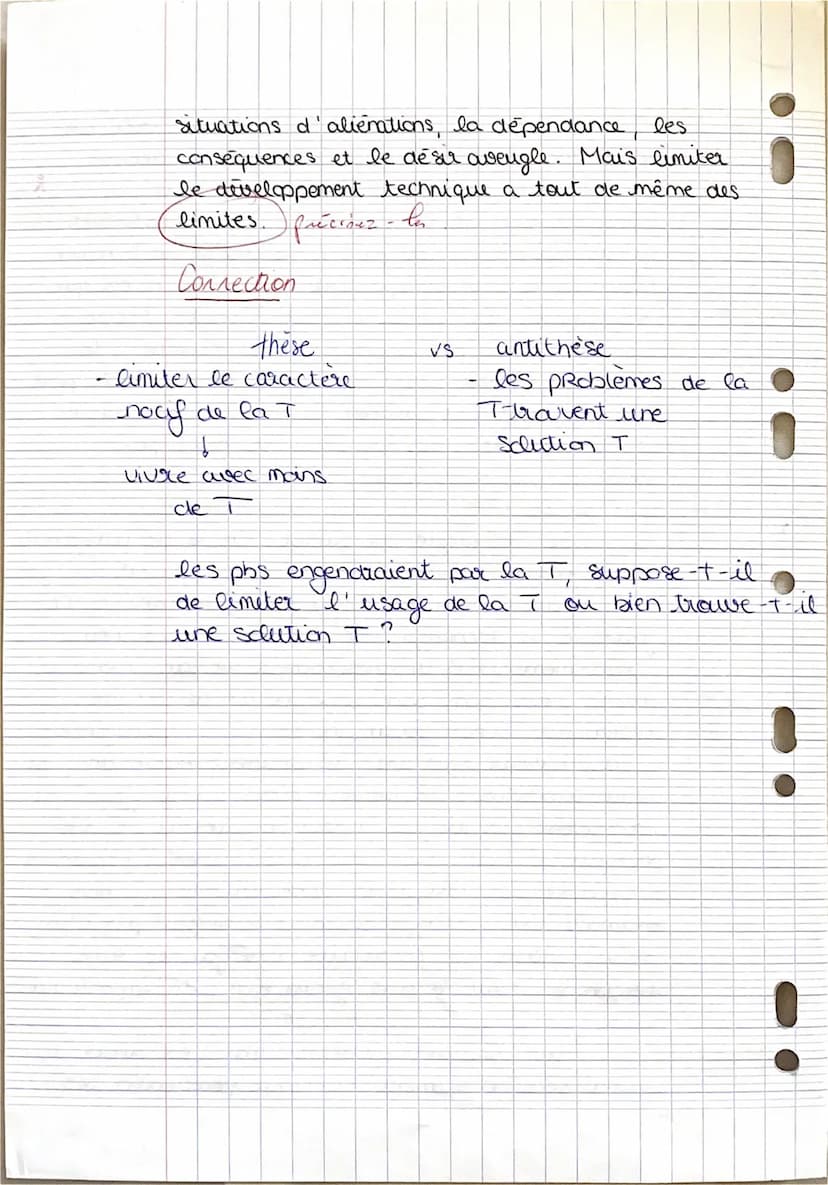 situations d'aliénations, la dépendance, les
conséquences et le désir aveugle. Mais limiter
le développement technique a tout de même des
limites. précisez-les
Correction
thèse vs antithèse
- limiter le caractère
nocif de la T
↓
vivre avec moins
de T
- les problèmes de la
T trouvent une
solution T
les pbs engendraient par la T, suppose-t-il
de limiter l'usage de la T ou bien trouve-t-il
une solution T ?